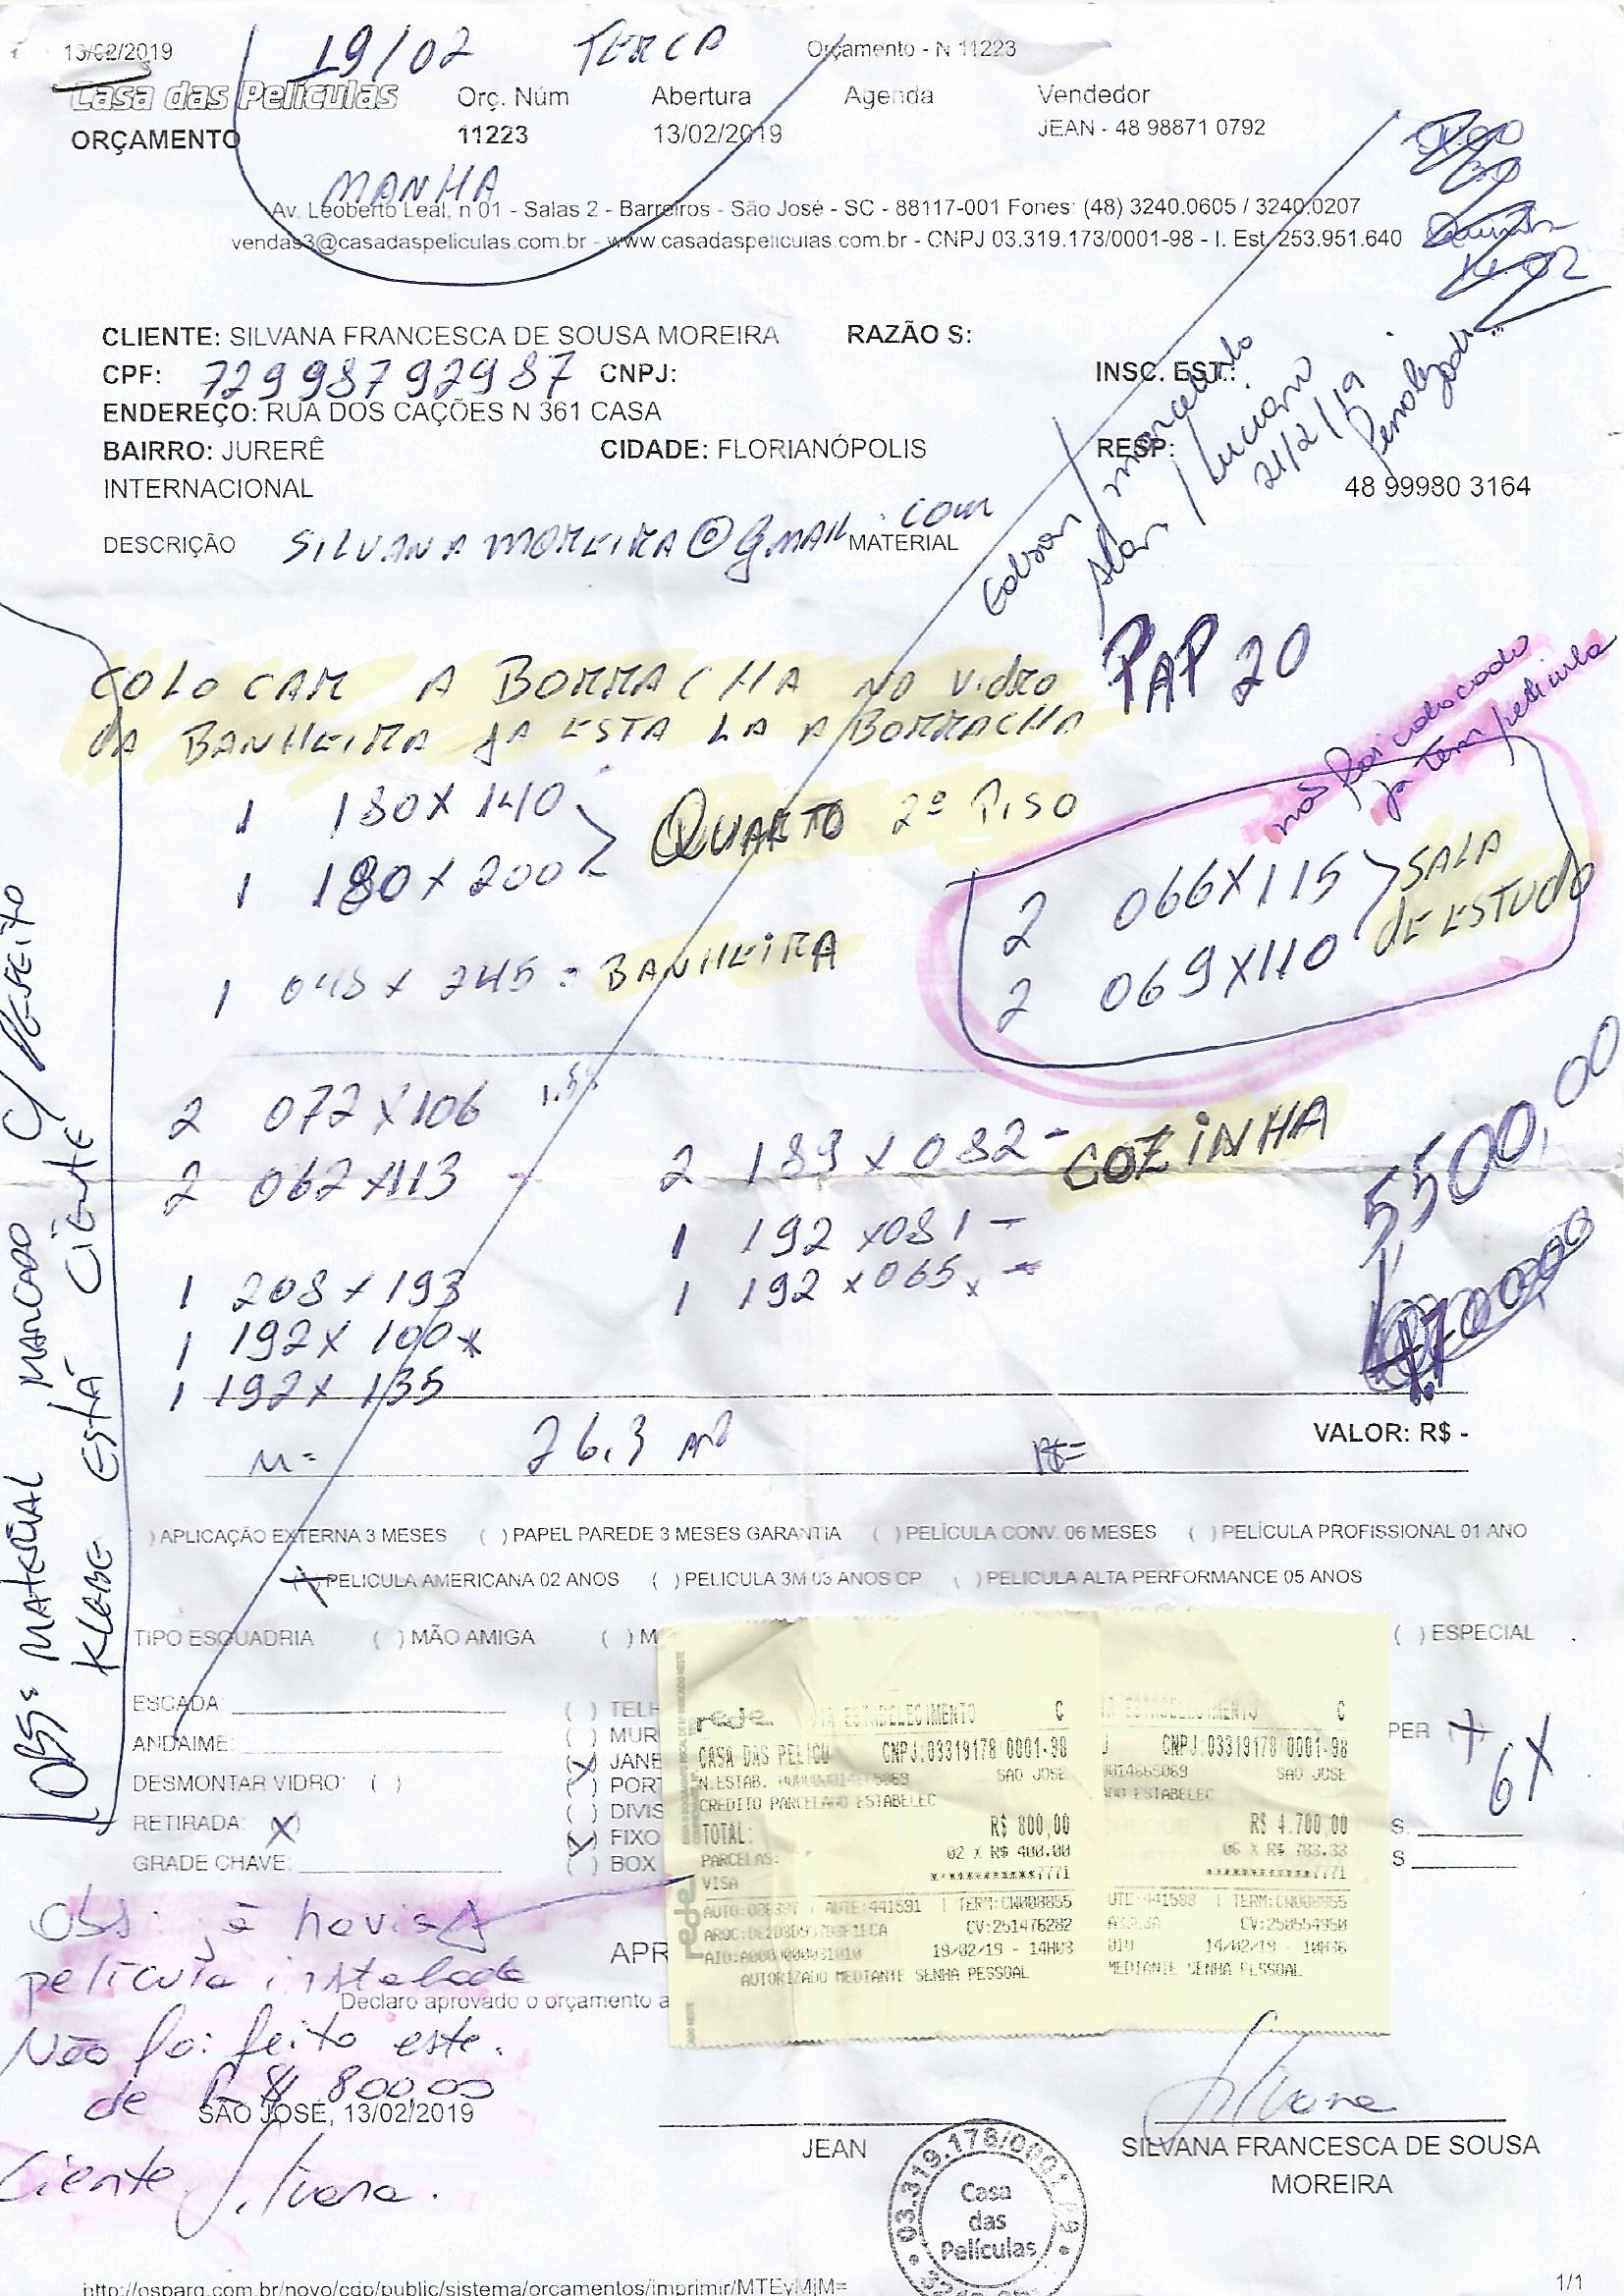 13/02/2019
19/02 TERCA
Orçamento - N 11223
Casa das Películas
Orç. Núm Abertura Agenda Vendedor
ORÇAMENTO 11223 13/02/2019 JEAN - 48 98871 0792
MANHA
Av. Leoberto Leal, n 01 - Salas 2 - Barreiros - São José - SC - 88117-001 Fones: (48) 3240.0605 / 3240.0207
vendas3@casadaspeliculas.com.br - www.casadaspeliculas.com.br - CNPJ 03.319.173/0001-98 - I. Est. 253.951.640
CLIENTE: SILVANA FRANCESCA DE SOUSA MOREIRA RAZÃO S:
CPF: 72998792987 CNPJ: INSC. EST.:
ENDEREÇO: RUA DOS CAÇÕES N 361 CASA
BAIRRO: JURERÊ CIDADE: FLORIANÓPOLIS RESP:
INTERNACIONAL 48 99980 3164
DESCRIÇÃO SILVANAMOREIRA@gmail.com MATERIAL
/ Luciano
21/2/19
PAP 20
COLOCAR A BORRACHA NO VIDRO
DA BANHEIRA JA ESTA LA A BORRACHA
não foi colocado
já tem pelicula
1 180 X 140
1 180 X 200
QUARTO 2º PISO
2 066X115
2 069X110
SALA
DE ESTUDO
1 048 x 245 = BANHEIRA
2 072 X 106
2 062 X 113
2 189 X 082 - COZINHA
1 192 X 081 -
1 192 X 065 x -
1 208 X 193
1 192 X 100 x
1 192 X 135
5500,00
M= 26,3 m²
R$=
VALOR: R$ -
OBS: MATERIAL MARCADO C/ DEFEITO
KLEBE ESTÁ CIENTE
) APLICAÇÃO EXTERNA 3 MESES ( ) PAPEL PAREDE 3 MESES GARANTIA ( ) PELÍCULA CONV. 06 MESES ( ) PELÍCULA PROFISSIONAL 01 ANO
(X) PELICULA AMERICANA 02 ANOS ( ) PELICULA 3M 03 ANOS CP ( ) PELICULA ALTA PERFORMANCE 05 ANOS
TIPO ESQUADRIA ( ) MÃO AMIGA ( ) M ( ) ESPECIAL
ESCADA: ( ) TELH
ANDAIME: ( ) MUR
PER X
6X
DESMONTAR VIDRO: ( ) (X) JANE
( ) PORT
RETIRADA: X ( ) DIVIS
(X) FIXO
GRADE CHAVE: ( ) BOX
S:
S
rede
VIA ESTABELECIMENTO C
CASA DAS PELICU CNPJ:03319178 0001-98
SAO JOSE
CREDITO PARCELADO ESTABELEC
TOTAL: R$ 800,00
PARCELAS: 02 X R$ 400.00
VISA ************7771
AUTE:441591 | TERM:CW008855
CV:251476282
19/02/19 - 14H03
AUTORIZADO MEDIANTE SENHA PESSOAL
C
CNPJ:03319178 0001-98
SAO JOSE
ADO ESTABELEC
R$ 4.700,00
06 X R$ 783.33
************7771
CV:250554950
14/02/19 - 10H36
MEDIANTE SENHA PESSOAL
Obs: já havia
pelicula instalada
Não foi feito este.
de R$ 800,00
Ciente Silvana.
APR
Declaro aprovado o orçamento a
SÃO JOSÉ, 13/02/2019
Silvana
JEAN
SILVANA FRANCESCA DE SOUSA
MOREIRA
Casa
das
Películas
http://osparg.com.br/novo/cdp/public/sistema/orcamentos/imprimir/MTEyMjM=
1/1